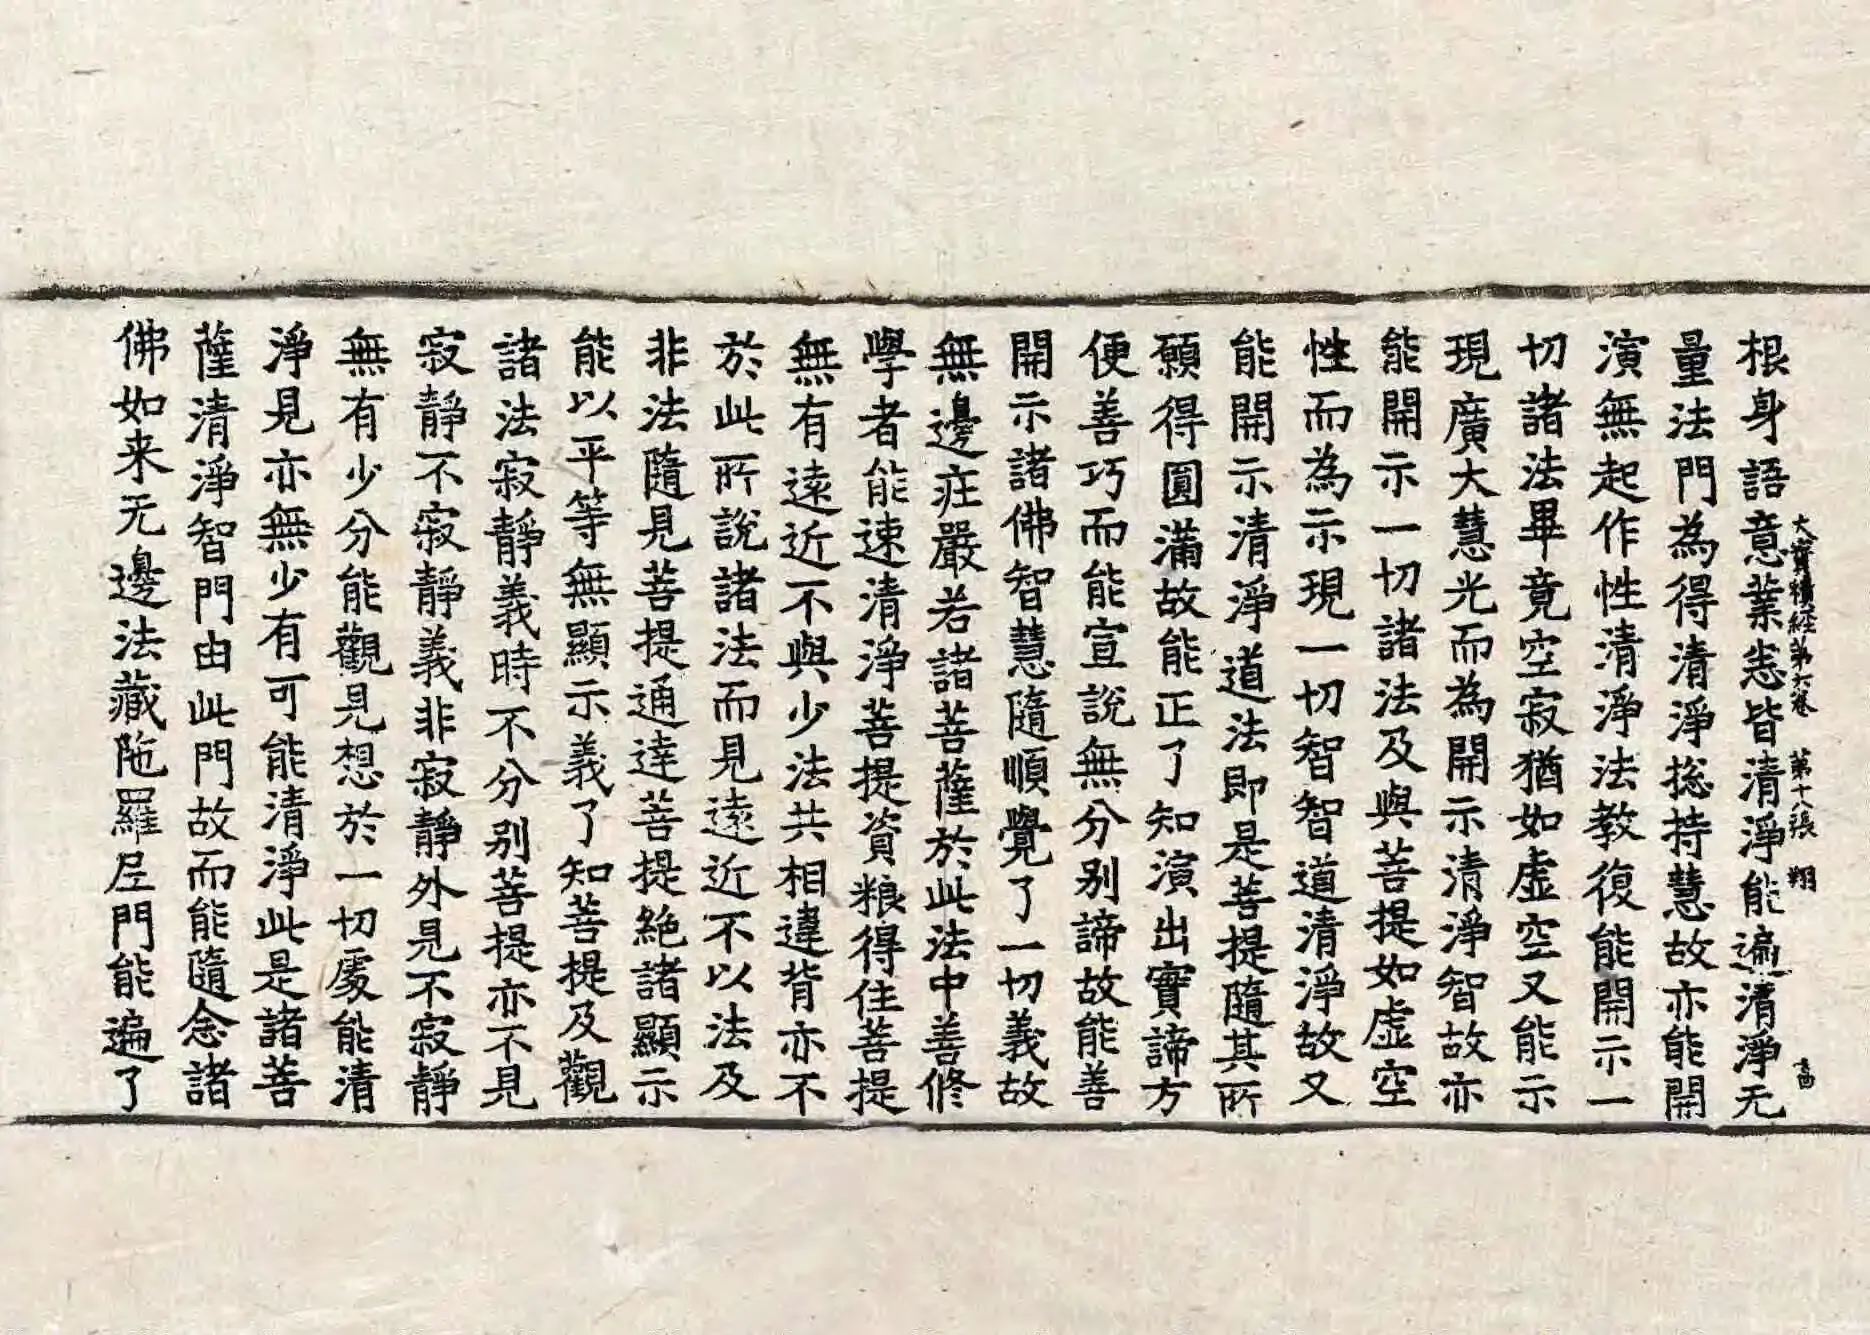 大寶積經第六卷　第十八張　翔
根身語意業悉皆清淨能遍清淨无
量法門為得清淨捴持慧故亦能開
演無起作性清淨法教復能開示一
切諸法畢竟空寂猶如虛空又能示
現廣大慧光而為開示清淨智故亦
能開示一切諸法及與菩提如虛空
性而為示現一切智智道清淨故又
能開示清淨道法即是菩提隨其所
願得圓滿故能正了知演出實諦方
便善巧而能宣說無分別諦故能善
開示諸佛智慧隨順覺了一切義故
無邊莊嚴若諸菩薩於此法中善修
學者能速清淨菩提資粮得住菩提
無有遠近不與少法共相違背亦不
於此所說諸法而見遠近不以法及
非法隨見菩提通達菩提絶諸顯示
能以平等無顯示義了知菩提及觀
諸法寂靜義時不分別菩提亦不見
寂靜不寂靜義非寂靜外見不寂靜
無有少分能觀見想於一切處能清
淨見亦無少有可能清淨此是諸菩
薩清淨智門由此門故而能隨念諸
佛如来无邊法藏陁羅尼門能遍了